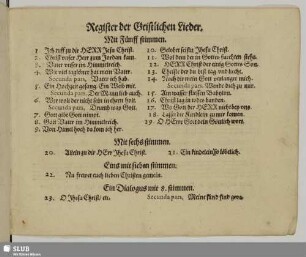 Register der Geistlichen Lieder.
Mit Fünff stimmen.
1. Ich ruff zu dir HERR Jesu Christ.
2. Christ unser Herr zum Jordan kam.
3. Vater unser im Himmelreich.
4. Wie viel
Secunda pars, Vater ich hab.
5. Ein Hochzeit gefang Ein Weib mit.
Secunda pars. Der Man
6. Wer
Secunda pars.
7. Gott
8. Gott Vater im Himmelreich.
9. Von Himel hoch da kom ich her.
10. Gelobet seistu Jhesu Christ.
11. Wol dem der in Gottes furchten stehet.
12. HERR Christ der einig Gottes Son.
13. Christe der du bist tag und liecht.
14. Nach dir mein Gott verlanget mich.
Secunda pars. Wende dich zu mir.
15. An wasserflüssen Babilon.
16. Christ lag in todes banden.
17. Wo Gott der HERR nicht bey uns.
18. Lasset die Kindlein zu mir komen.
19. O HErre Gott dein Göttlich wort.
Mit sechs stimmen.
20. Allein zu dir HErr Jhesu Christ.
21. Ein kindelein so löbelich.
Eins mit sieben stimmen.
22. Nu frewet euch lieben Christen gemein.
Ein Dialogus mit 8. stimmen.
23. O Jhesu Christ/ etc.
Secunda pars, Meine sünd sind
SLUB